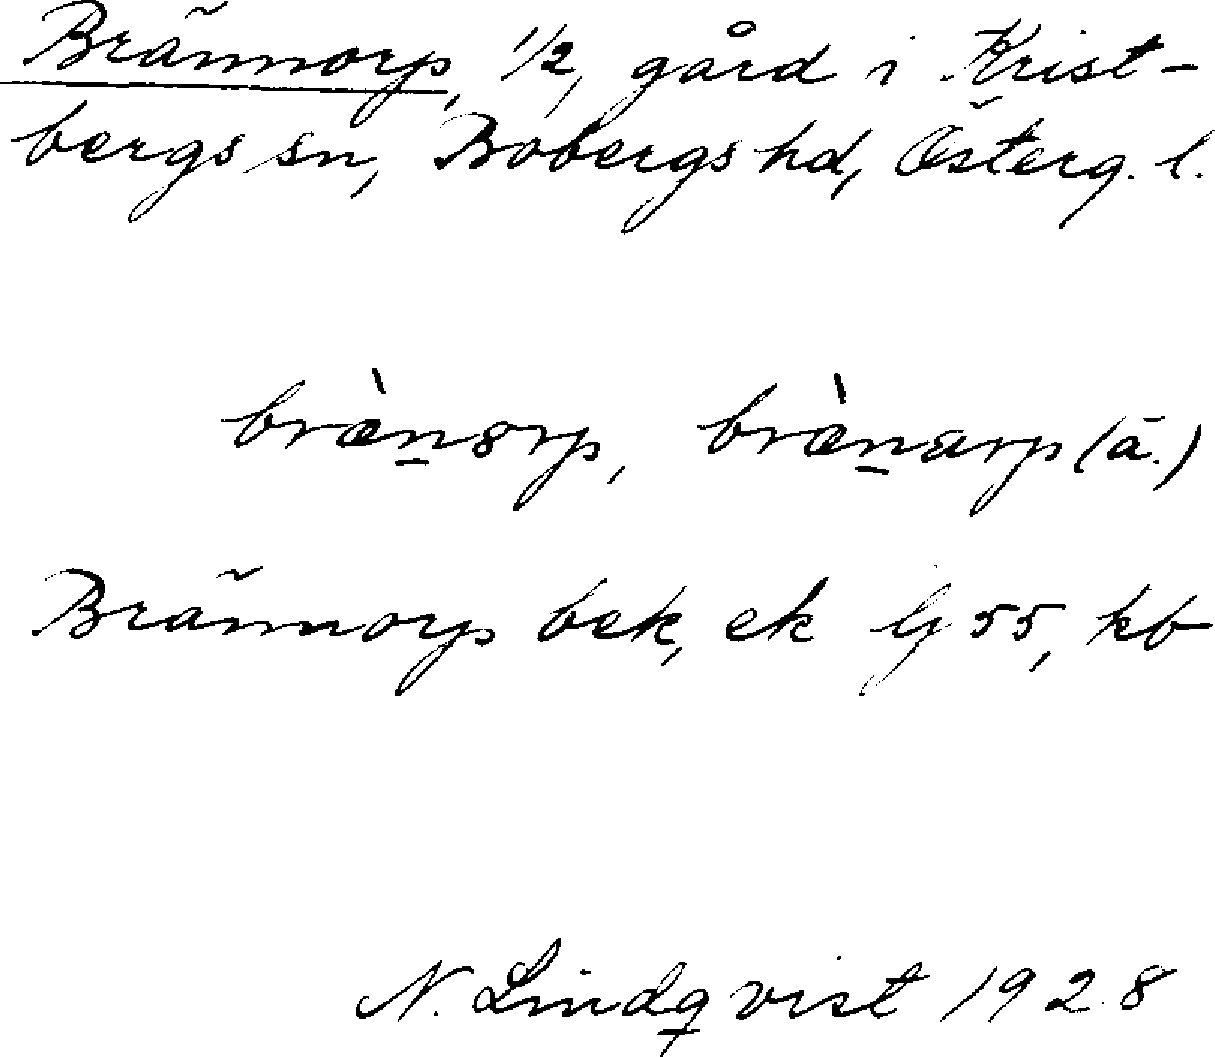 Brännorp, 1/2, gård i Krist-
bergs sn, Bobergs hd, Österg. l.
bræ̀n̠orp, bræ̀n̠arp (ä.)
Brännorp bek, ek G 55, kb
N. Lindqvist 1928